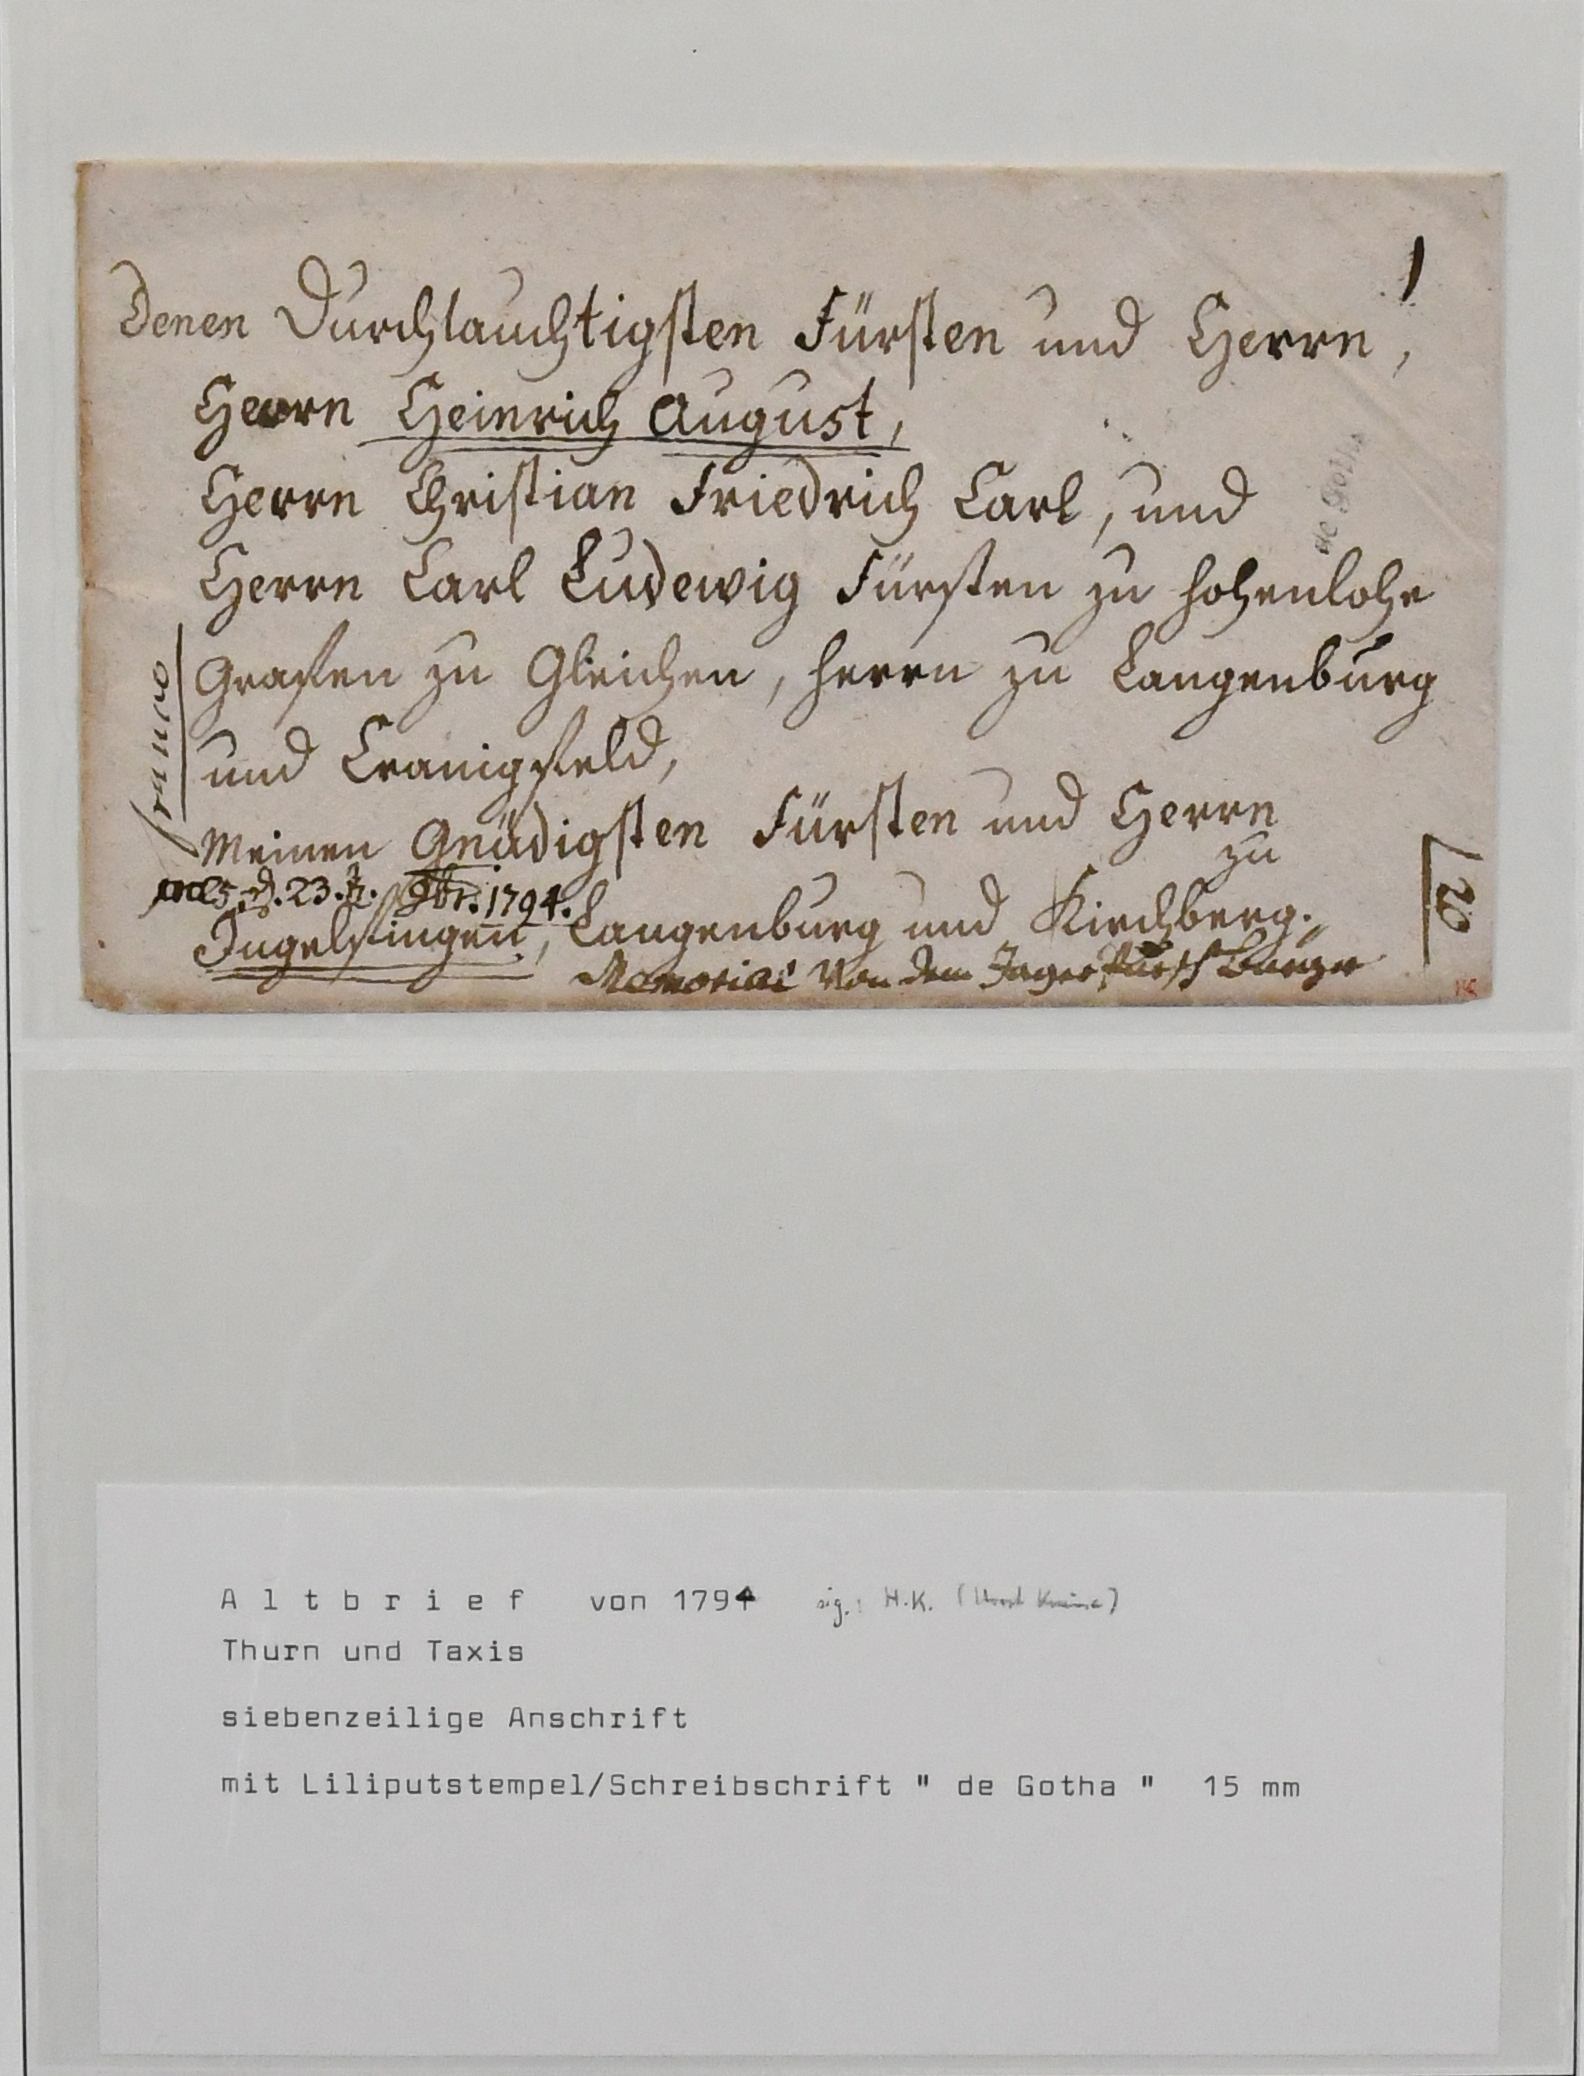 Denen Durchlauchtigsten Fürsten und Herrn,
Herrn Heinrich August,
Herrn Christian Friedrich Carl, und
de Gotha
Herrn Carl Ludewig Fürsten zu Hohenlohe
Grafen zu Gleichen, Herrn zu Langenburg
franco
und Cranigfeld,
Meinen Gnädigsten Fürsten und Herrn
zu
d. 23. 9br. 1794.
Ingelfingen, Langenburg und Kirchberg.
Memorial Von dem Jager Pursch
20
HK
Altbrief von 1794 sig.: H.K. (Horst Krause)
Thurn und Taxis
siebenzeilige Anschrift
mit Liliputstempel/Schreibschrift " de Gotha " 15 mm